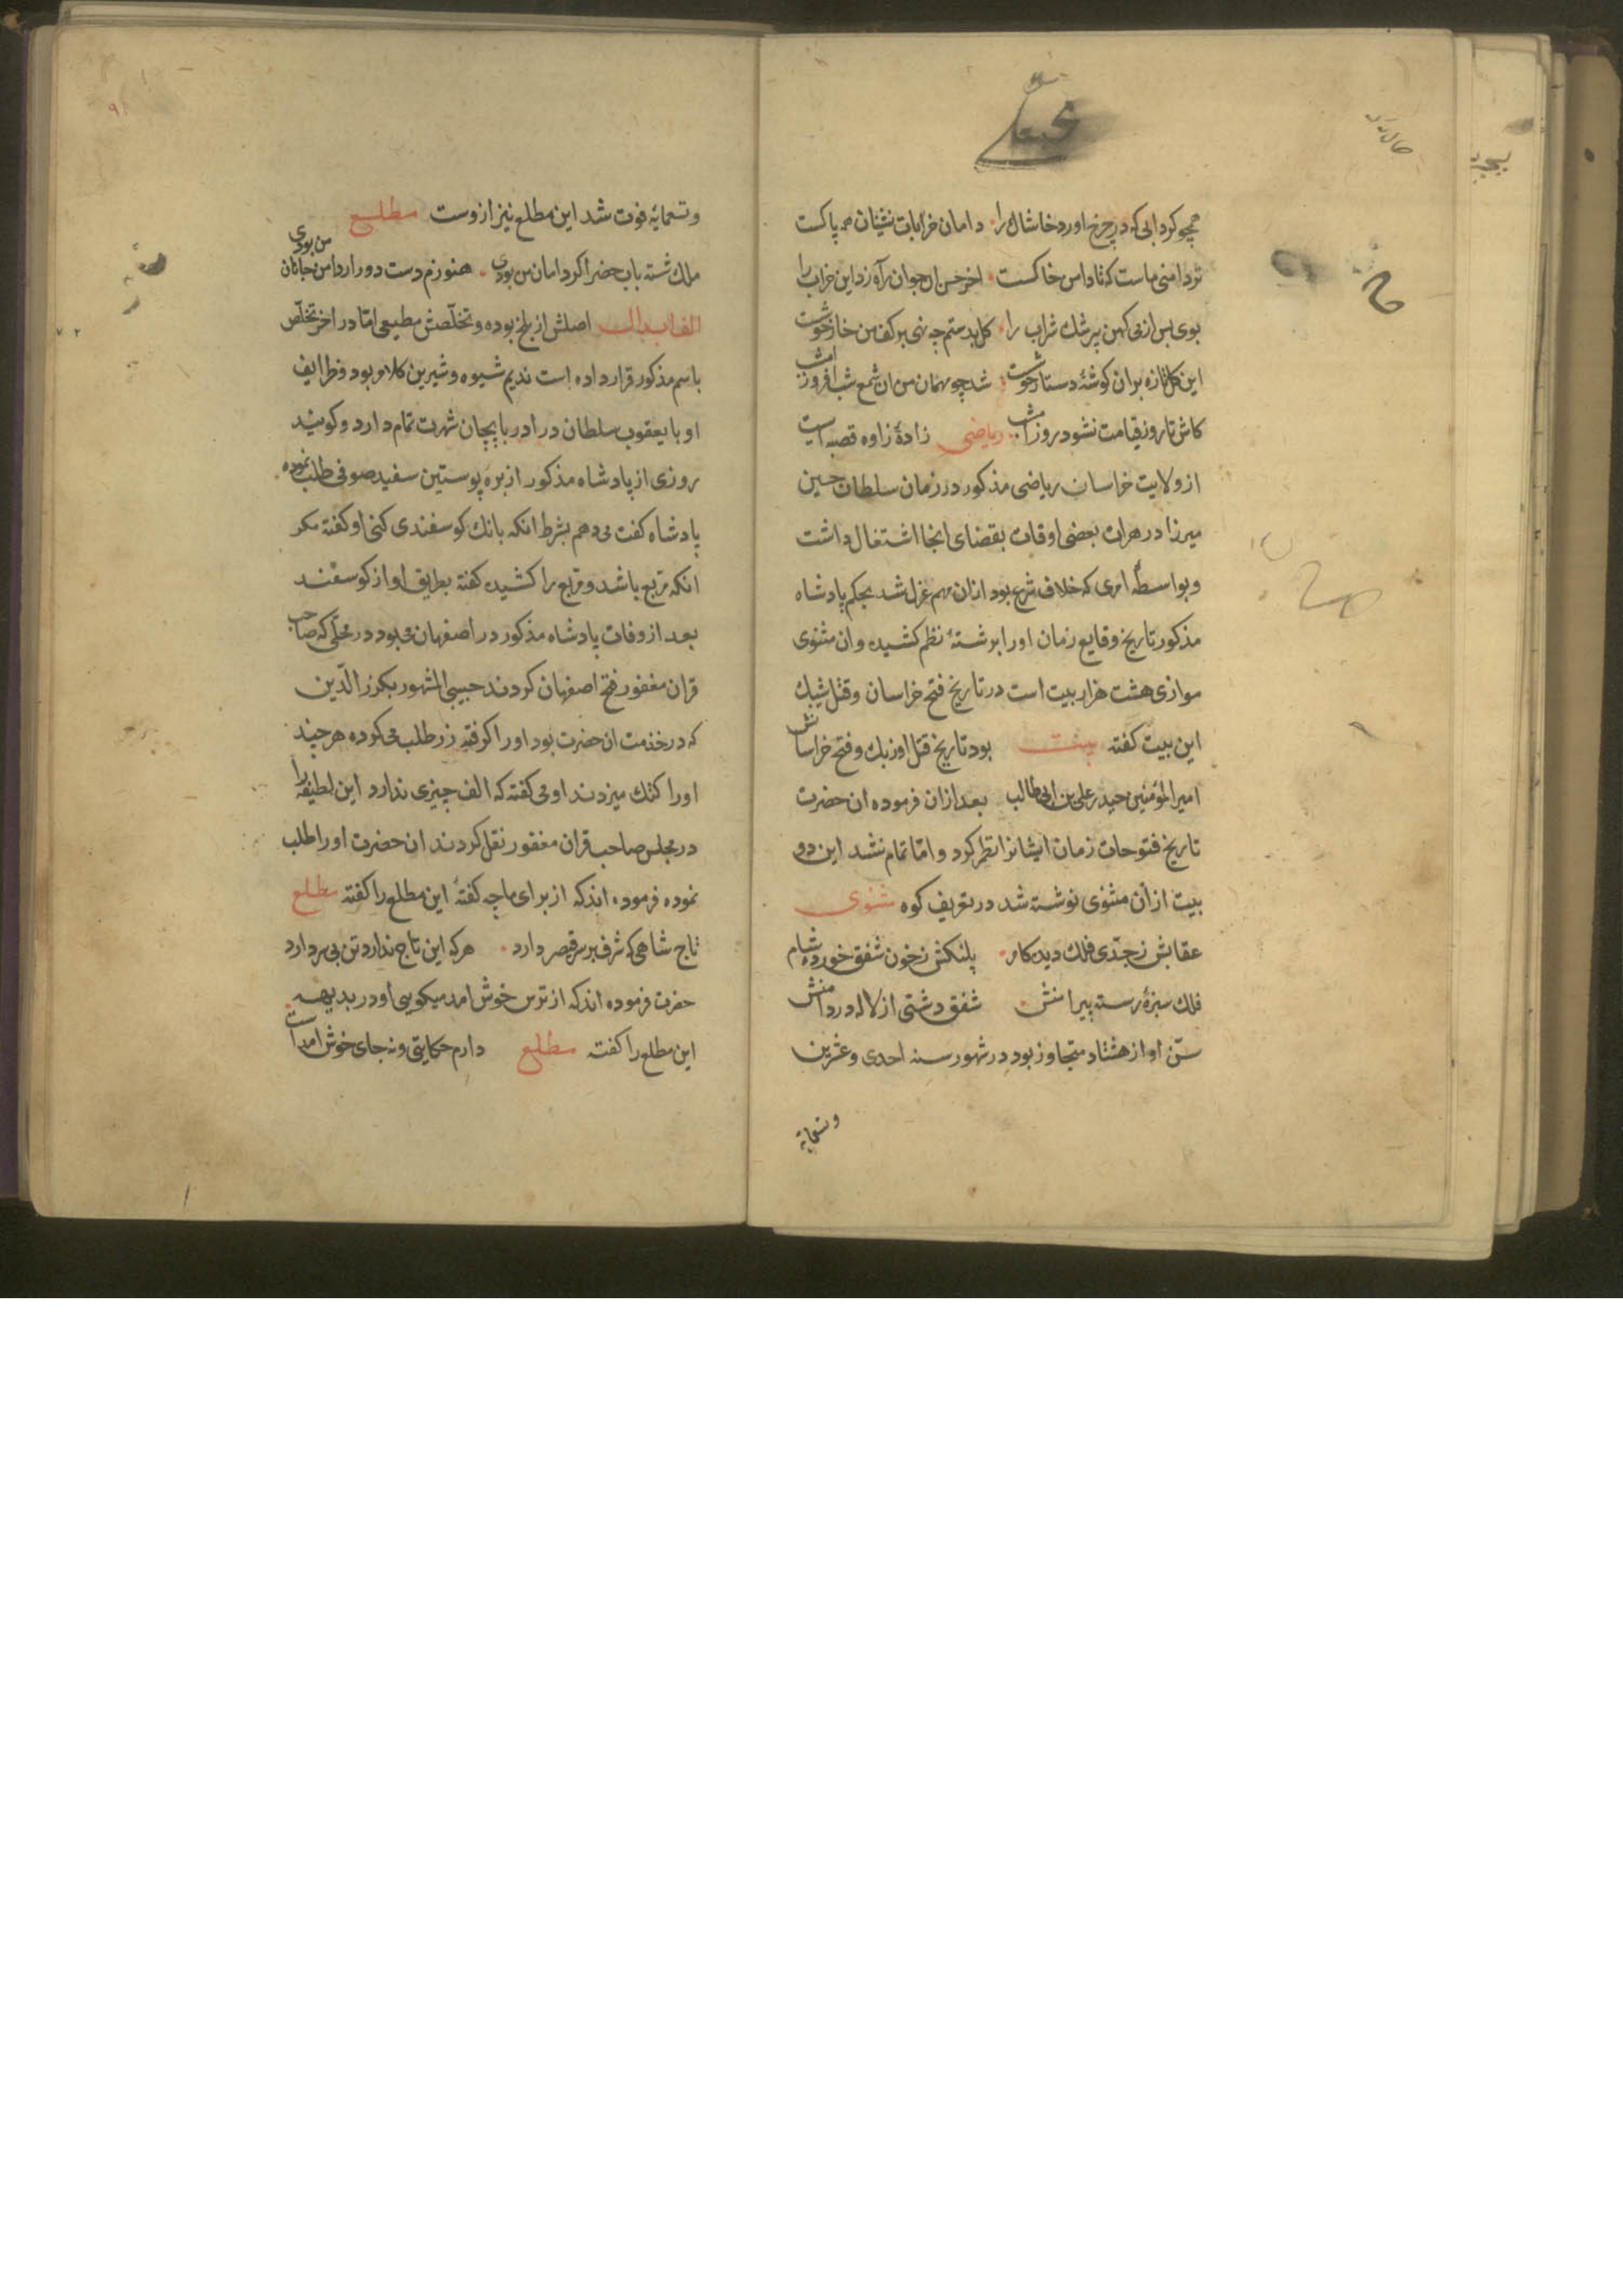 همچو کردابی که در چرخ اورد خاشاک را دامان خرابات نشینان همه پاکست
تردامنی ماست که تا دامن خاکست اخر حسن ان جوان راورد این خراب را
بوی بس از می کهن پیر شک شراب را کل بدستم چه نهی بر کف من خار خوشست
این کل تازه بران کوشهٔ دستار خوشت شد چو مهمان من ان شمع شب افروز امشب
کاش تا روز قیامت نشود روز امشب ریاضی زادهٔ زاوه قصبه ایست
از ولایت خراسان ریاضی مذکور در زمان سلطان حسین
میرزا در هرات بعضی اوقات بقضای انجا اشتغال داشت
و بواسطهٔ امری که خلاف شرع بود ازان مهم عزل شد بحکم پادشاه
مذکور تاریخ وقایع زمان اورا برشتهٔ نظم کشیده وان مثنوی
موازی هشت هزار بیت است در تاریخ فتح خراسان وقتل شیبک
این بیت کفته بیت بود تاریخ قتل اوزبک وفتح خراسانش
امیرالمؤمنین حیدر علی بن ابی طالب بعد ازان فرموده ان حضرت
تاریخ فتوحات زمان ایشانرا نظم کرد و امّا تمام نشد این دو
بیت ازان مثنوی نوشته شد در تعریف کوه مثنوی
عقابش ز جدّی فلک دیده کام پلنکش ز خون شفق خورده شام
فلک سبزهٔ رسته پیرامنش شفق دشتی از لاله در دامنش
سنّ او از هشتاد متجاوز بود در شهور سنه احدی وعشرین
وتسعمایه
وتسعمایه فوت شد این مطلع نیز ازوست مطلع
ملک شسته باب خضر اکر دامان من بودی هنوزم دست دور ارد امن جانان من بودی
الف ابدال اصلش از بلخ بوده وتخلّصش مطیعی امّا در اخر تخلّص
باسم مذکور قرار داده است ندیم شیوه وشیرین کلام بود وظرایف
او با یعقوب سلطان در ادربایجان شهرت تمام دارد وکویند
روزی از پادشاه مذکور از بره پوستین سفید صوفی طلب نموده
پادشاه کفت می دهم بشرط انکه بانک کوسفندی کنی او کفته مکر
انکه مربع باشد ومربع را کشیده کفته بطریق اواز کوسفند
بعد از وفات پادشاه مذکور در اصفهان می بود در محلّی که صاحب
قران مغفور فتح اصفهان کردند حبیبی المشهور بکرز الدّین
که در خدمت ان حضرت بود اورا کرفته زر طلب می کرده هر چند
اورا کتک میزدند او می کفته که الف چیزی ندارد این لطیفه را
در مجلس صاحب قران مغفور نقل کردند ان حضرت اورا طلب
نموده فرموده اند که از برای ما چه کفتهٔ این مطلع را کفته مطلع
تاج شاهی که شرف بر سر قیصر دارد هر که این تاج ندارد تن بی سر دارد
حضرت فرموده اند که از ترس خوش امد میکویی او در بدیهه
این مطلع را کفته مطلع دارم حکایتی ونه جای خوش امد است